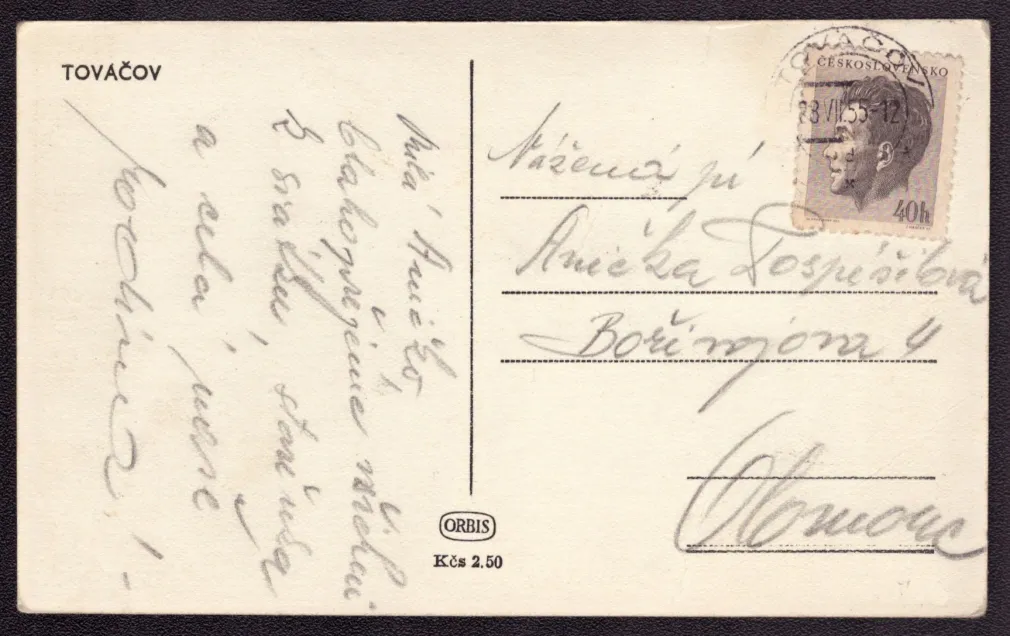 TOVAČOV
Milá Aničko
blahopřejeme všichni
k svátku,
a celá
rodina! -
ORBIS
Kčs 2.50
TOVAČOV
ČESKOSLOVENSKO
55-12
40h
Vážená pí
Anička Pospíšilová
Bořivojova 4
Olomouc